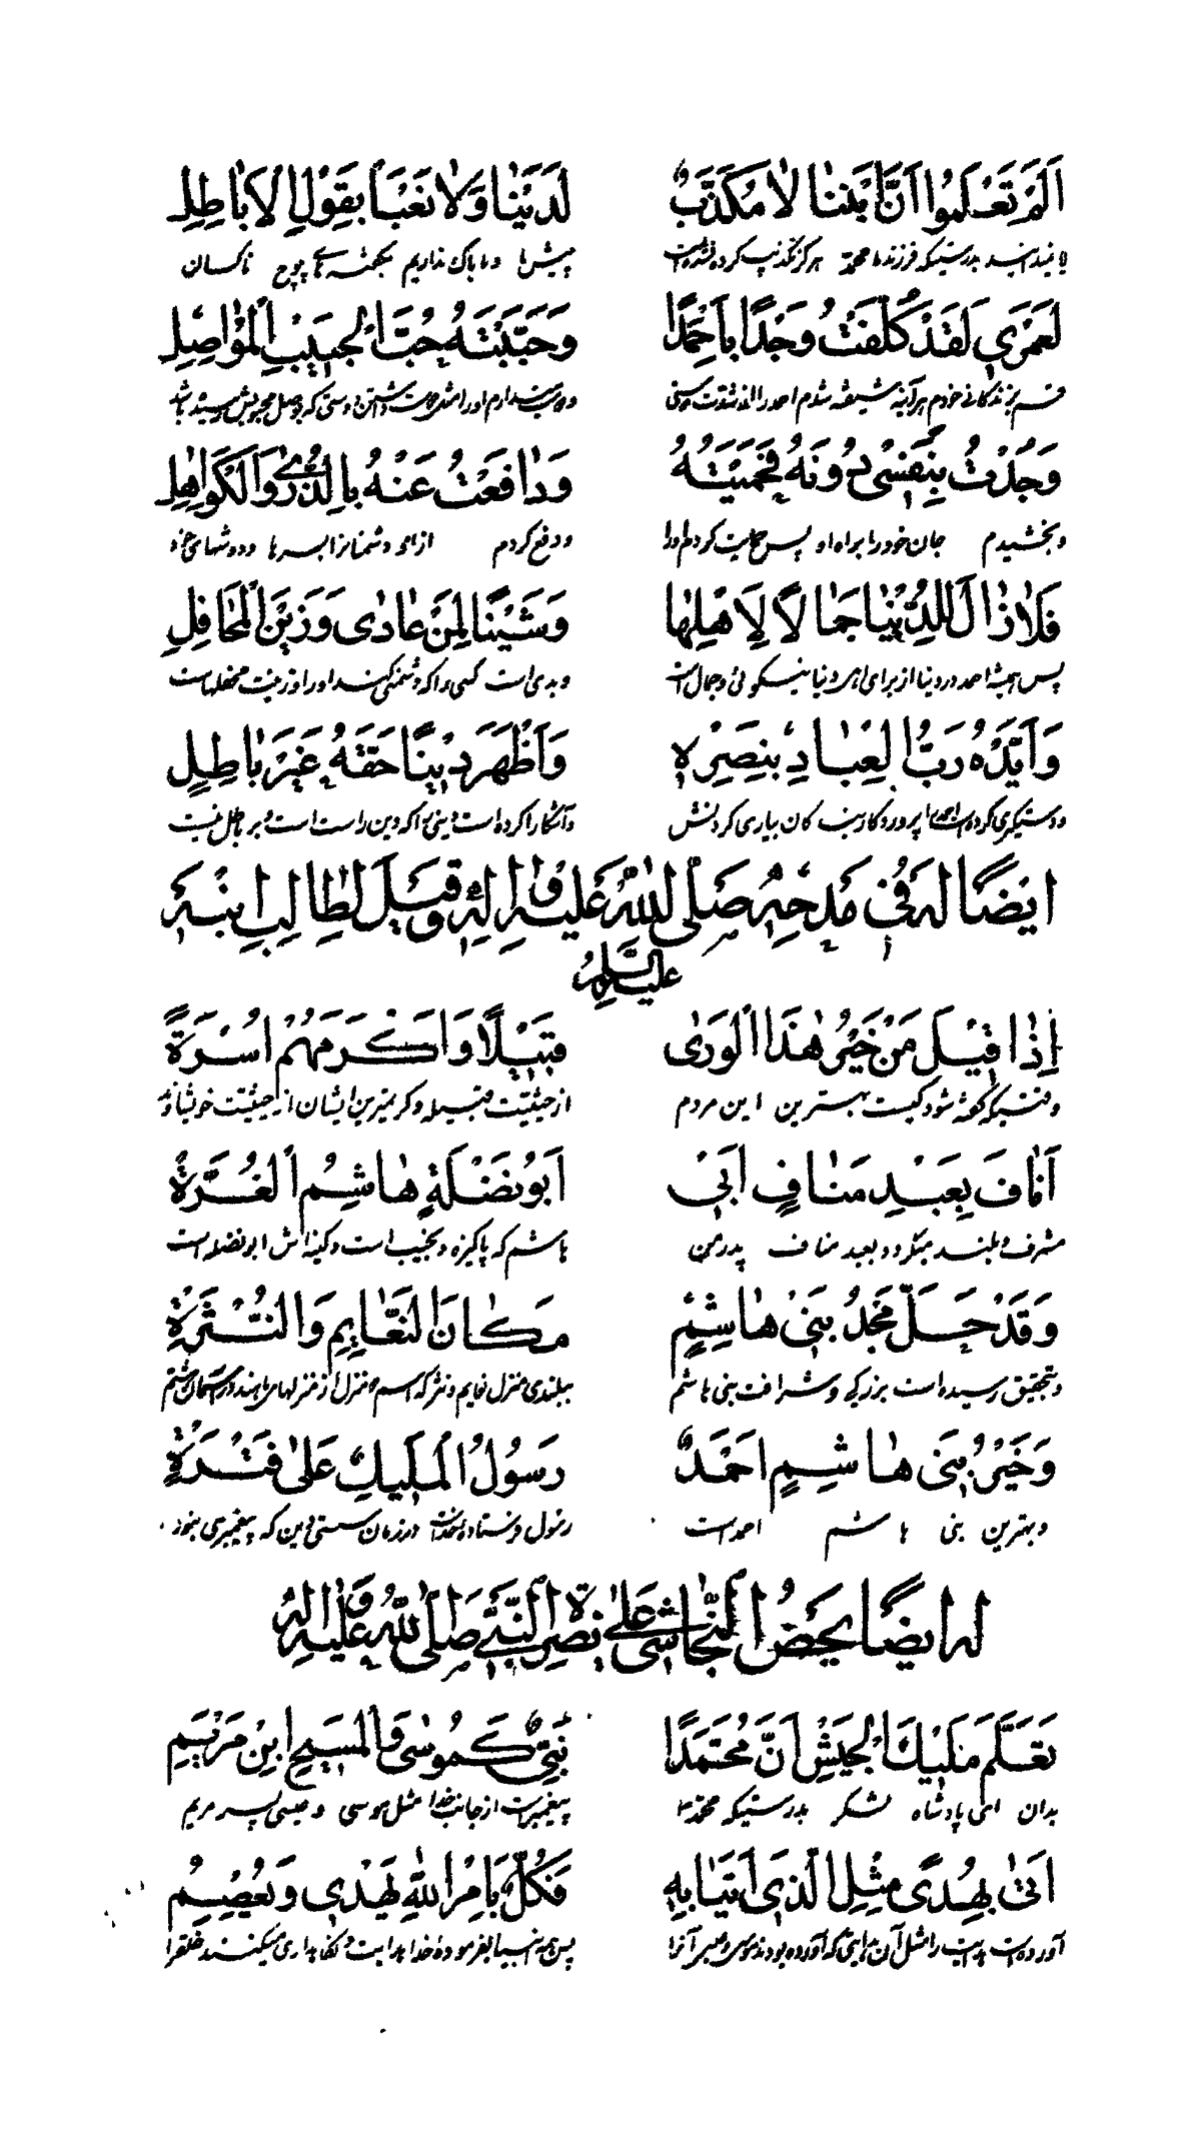 اَلَمْ تَعْلَمُوا اَنَّ ابْنَنَا لَا مُكَذَّبٌ لَدَيْنَا وَلَا نَعْبَأُ بِقَوْلِ الْاَبَاطِلِ
بدرستیکه فرزند ما محمد هرگز تکذیب کرده نشده است پیش ما و ما باک نداریم بگفته‌های پوچ ناکسان
لَعَمْرِي لَقَدْ كُلِّفْتُ وَجْدًا بِاَحْمَدًا وَحَبَّبْتُهُ حُبَّ الْحَبِيبِ الْمُوَاصِلِ
قسم بزندگانی خودم هرآینه شیفته شدم احمد را
وَجُدْتُ بِنَفْسِي دُونَهُ فَحَمَيْتُهُ وَدَافَعْتُ عَنْهُ بِالذُّرَىٰ وَالْكَوَاهِلِ
و بخشیدم جان خود را براه او پس حمایت کردم او را و دفع کردم از او دشمنانرا بسرها و دوشهای خود
فَلَا زَالَ لِلدُّنْيَا جَمَالًا لِاَهْلِهَا وَشَيْنًا لِمَنْ عَادَىٰ وَزَيْنَ الْمَحَافِلِ
پس همیشه احمد در دنیا از برای اهل دنیا نیکوئی و جمال است و بدی است کسی را که دشمنی کند او را و زینت محفلهاست
وَاَيَّدَهُ رَبُّ الْعِبَادِ بِنَصْرِهِ وَاَظْهَرَ دِينًا حَقُّهُ غَيْرُ بَاطِلٍ
و دستگیری کرده است احمد را پروردگار بندگان بیاری کردنش و آشکارا کرده است دینی را که دین راست است و بر باطل نیست
ايضًا له في مدحه صلى الله عليه و اله و قيل لطالب ابنه
عليه السلام
اِذَا قِيلَ مَنْ خَيْرُ هٰذَا الْوَرَىٰ قَبِيلًا وَاَكْرَمُهُمْ اُسْرَةً
وقتیکه گفته شود کیست بهترین این مردم از حیثیت قبیله و کریمترین ایشان از حیثیت خویشاوند
اَنَافَ بِعَبْدِ مَنَافٍ اَبِي اَبُو نَضْلَةٍ هَاشِمُ الْغُرَّةِ
مشرف و بلند میگردد بعبد مناف پدر من هاشم که پاکیزه و نجیب است و کنیه‌اش ابو نضله است
وَقَدْ حَلَّ مَجْدُ بَنِي هَاشِمٍ مَكَانَ النَّعَايِمِ وَالنَّثْرَةِ
و بتحقیق رسیده است بزرگی و شرافت بنی هاشم ببلندی منزل نعایم و نثره که اسم دو منزل از منزلهای ماهند
وَخَيْرُ بَنِي هَاشِمٍ اَحْمَدٌ رَسُولُ الْمَلِيكِ عَلَىٰ فَتْرَةٍ
و بهترین بنی هاشم احمد است رسول و فرستاده خداست در زمان سستی دین که پیغمبری نبود
له ايضًا يحضّ النجاشي على نصرة النبي صلى الله عليه و اله
تَعَلَّمْ مَلِيكَ الْحَبَشِ اَنَّ مُحَمَّدًا نَبِيٌّ كَمُوسَىٰ وَالْمَسِيحِ ابْنِ مَرْيَمِ
بدان ای پادشاه لشکر بدرستیکه محمد پیغمبر است از جانب خدا مثل موسی و عیسی پسر مریم
اَتَىٰ بِهُدًى مِثْلِ الَّذِي اَتَيَا بِهِ فَكُلٌّ بِاَمْرِ اللّٰهِ يَهْدِي وَيَعْصِمُ
آورده است هدایت را مثل آن هدایتی که آورده بودند موسی و عیسی آنرا پس همه انبیا بفرموده خدا هدایت و نگاهداری میکنند خلقرا